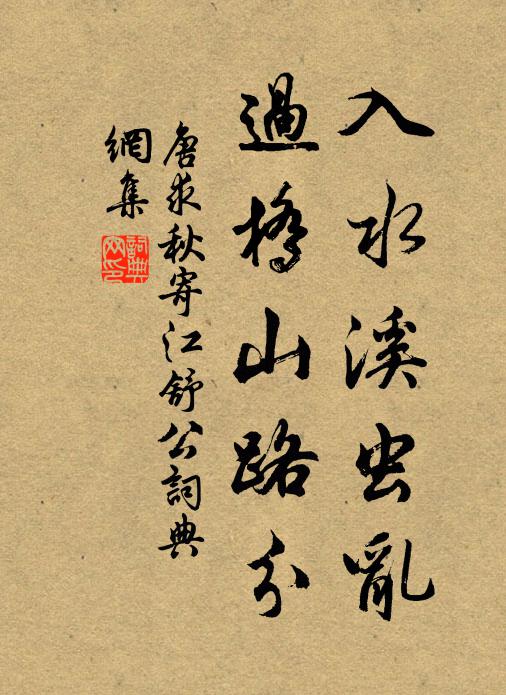 入水溪虫亂
過橋山路分
唐求秋寄江舒公詞典
網集
詞典
网印